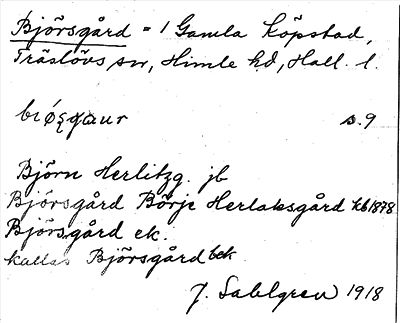 Björsgård = 1 Gamla Köpstad,
Träslövs sn, Himle hd, Hall. l.
s.9
Björn Herlitzg. jb
Björsgård Börje Herlaksgård kb 1878
Björsgård ek.
kallas Björsgård bek.
J. Sahlgren 1918